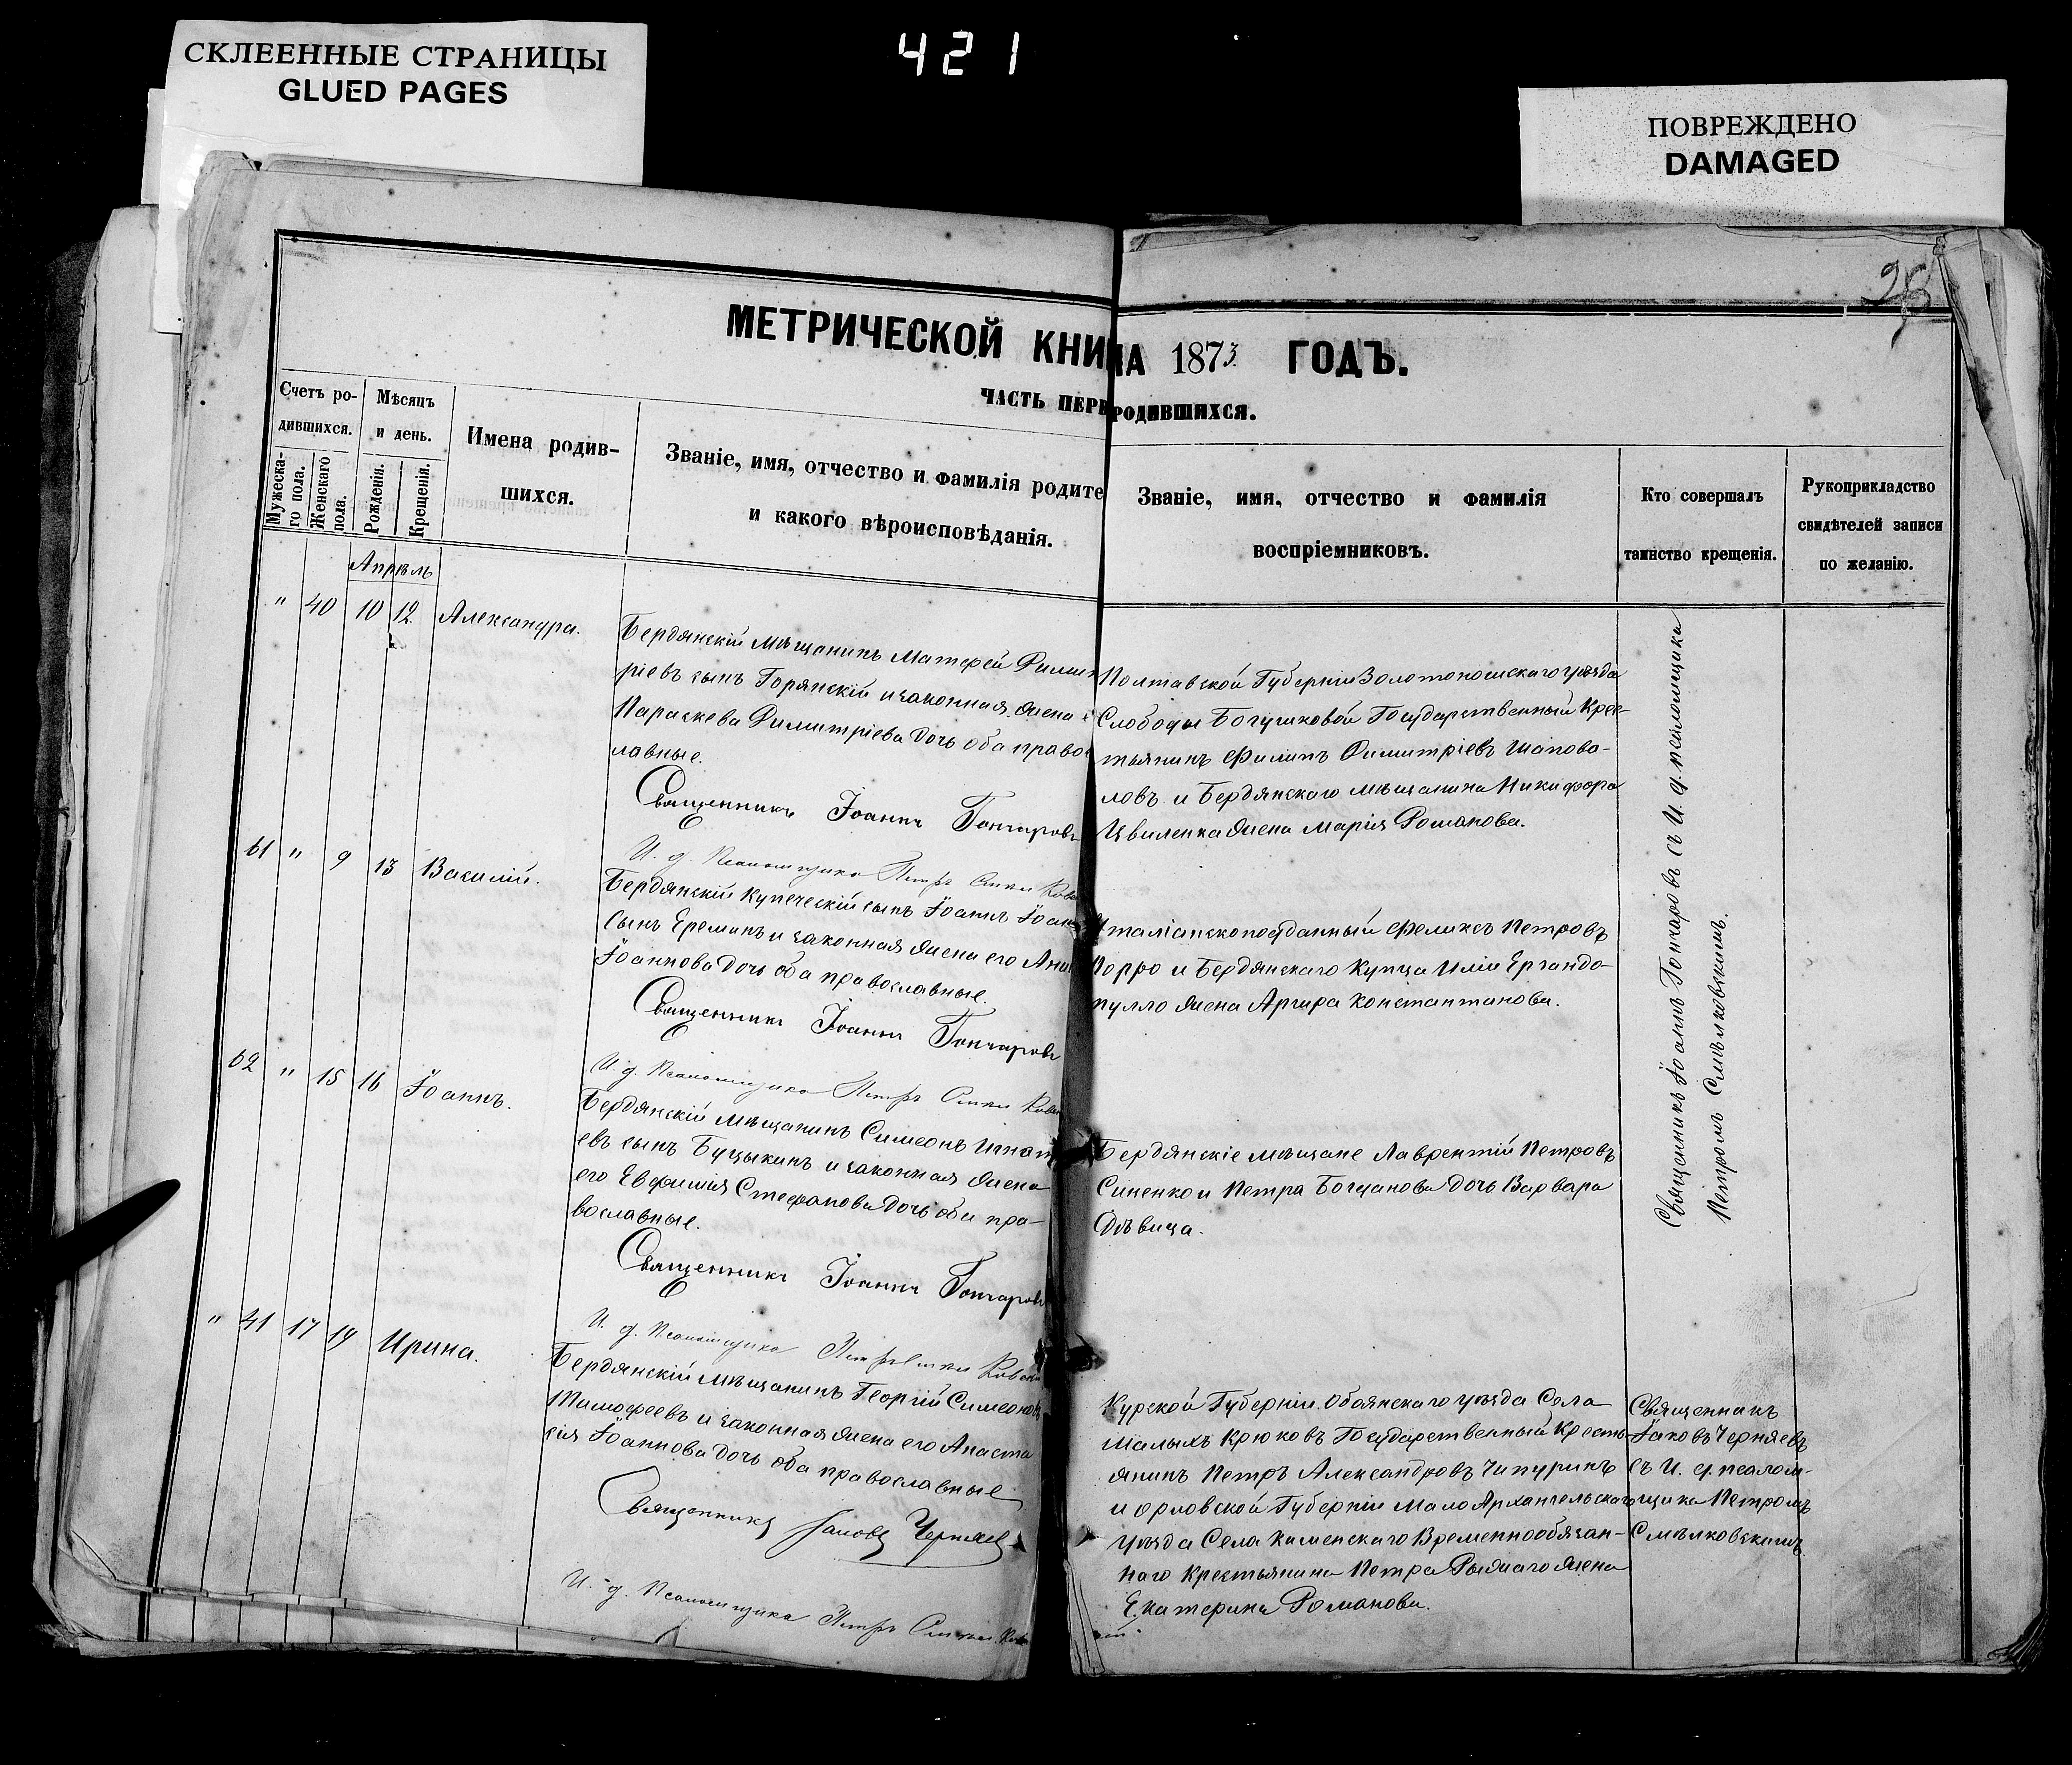 СКЛЕЕННЫЕ СТРАНИЦЫ
GLUED PAGES
421
ПОВРЕЖДЕНО
DAMAGED
МЕТРИЧЕСКОЙ КНИ
ЧАСТЬ ПЕРВ
Счетъ ро-
дившихся.
Мужеска-
го пола.
Женскаго
пола.
Мѣсяцъ
и день.
Рожденія.
Крещенія.
Имена родив-
шихся.
Званіе, имя, отчество и фамилія родите
и какого вѣроисповѣданія.
Апрѣль
" 40 10 12 Александра.
Бердянскій мѣщанинъ Матфей Димит
ріевъ сынъ Горянскій и законная жена е
Параскева Димитріева дочь оба право
лавные.
Священникъ Іоаннъ Гончаровъ
И. д. Псаломщика Петръ
61 " 9 13 Василій.
Бердянскій купеческій сынъ Іоаннъ Іоан
сынъ Ереминъ и законная жена его Анн
Іоаннова дочь оба православные.
Священникъ Іоаннъ Гончаровъ
И. д. Псаломщика Петръ
62 " 15 16 Іоаннъ.
Бердянскій мѣщанинъ Симеонъ Игнат
евъ сынъ Буцыкинъ и законная жена
его Евфимія Стефанова дочь оба пра-
вославные.
Священникъ Іоаннъ Гончаровъ
И. д. Псаломщика Петръ
" 41 17 19 Ирина.
Бердянскій мѣщанинъ Георгій Симеонов
Тимофеевъ и законная жена его Анаста
сія Іоаннова дочь оба православные
Священникъ Іаковъ Черняев
И. д. Псаломщика Петръ
28
ГА 1873 ГОДЪ.
РОДИВШИХСЯ.
Званіе, имя, отчество и фамилія
воспріемниковъ.
Кто совершалъ
таинство крещенія.
Рукоприкладство
свидѣтелей записи
по желанію.
Полтавской Губерніи Золотоношскаго уѣзда
Слободы Богушковой Государственный Крес-
тьянинъ Филипъ Димитріевъ Шапова-
ловъ и Бердянскаго мѣщанина Никифора
Цвиленка жена Марія Романова.
Италіанскоподданный Феликсъ Петровъ
Порро и Бердянскаго Купца Иліи Ергандо-
пулло жена Аргира Константинова.
Бердянскіе мѣщане Лаврентій Петровъ
Синенко и Петра Богданова дочь Варвара
дѣвица.
Священникъ Іоаннъ Гончаровъ съ И. д. псаломщика
Петромъ Смѣлковскимъ.
Курской Губерніи Обоянскаго уѣзда Села
Малыхъ Крюковъ Государственный Кресть
янинъ Петръ Александровъ Чипуринъ
и Орловской Губерніи Мало Архангельскаго
уѣзда Села Каменскаго Временнообязан-
наго Крестьянина Петра Рыжаго жена
Екатерина Романова.
Священникъ
Іаковъ Черняевъ
съ И. д. псалом-
щика Петромъ
Смѣлковскимъ